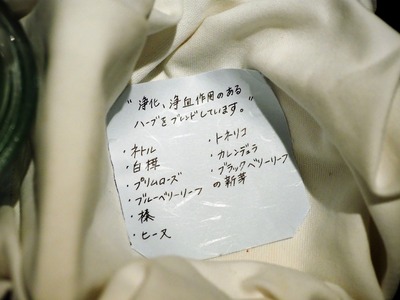 "浄化、浄血作用のある
ハーブをブレンドしています。"
・ネトル
・白樺
・プリムローズ
・ブルーベリーリーフ
・榛
・ヒース
・トネリコ
・カレンデュラ
・ブラックベリーリーフ
の新芽